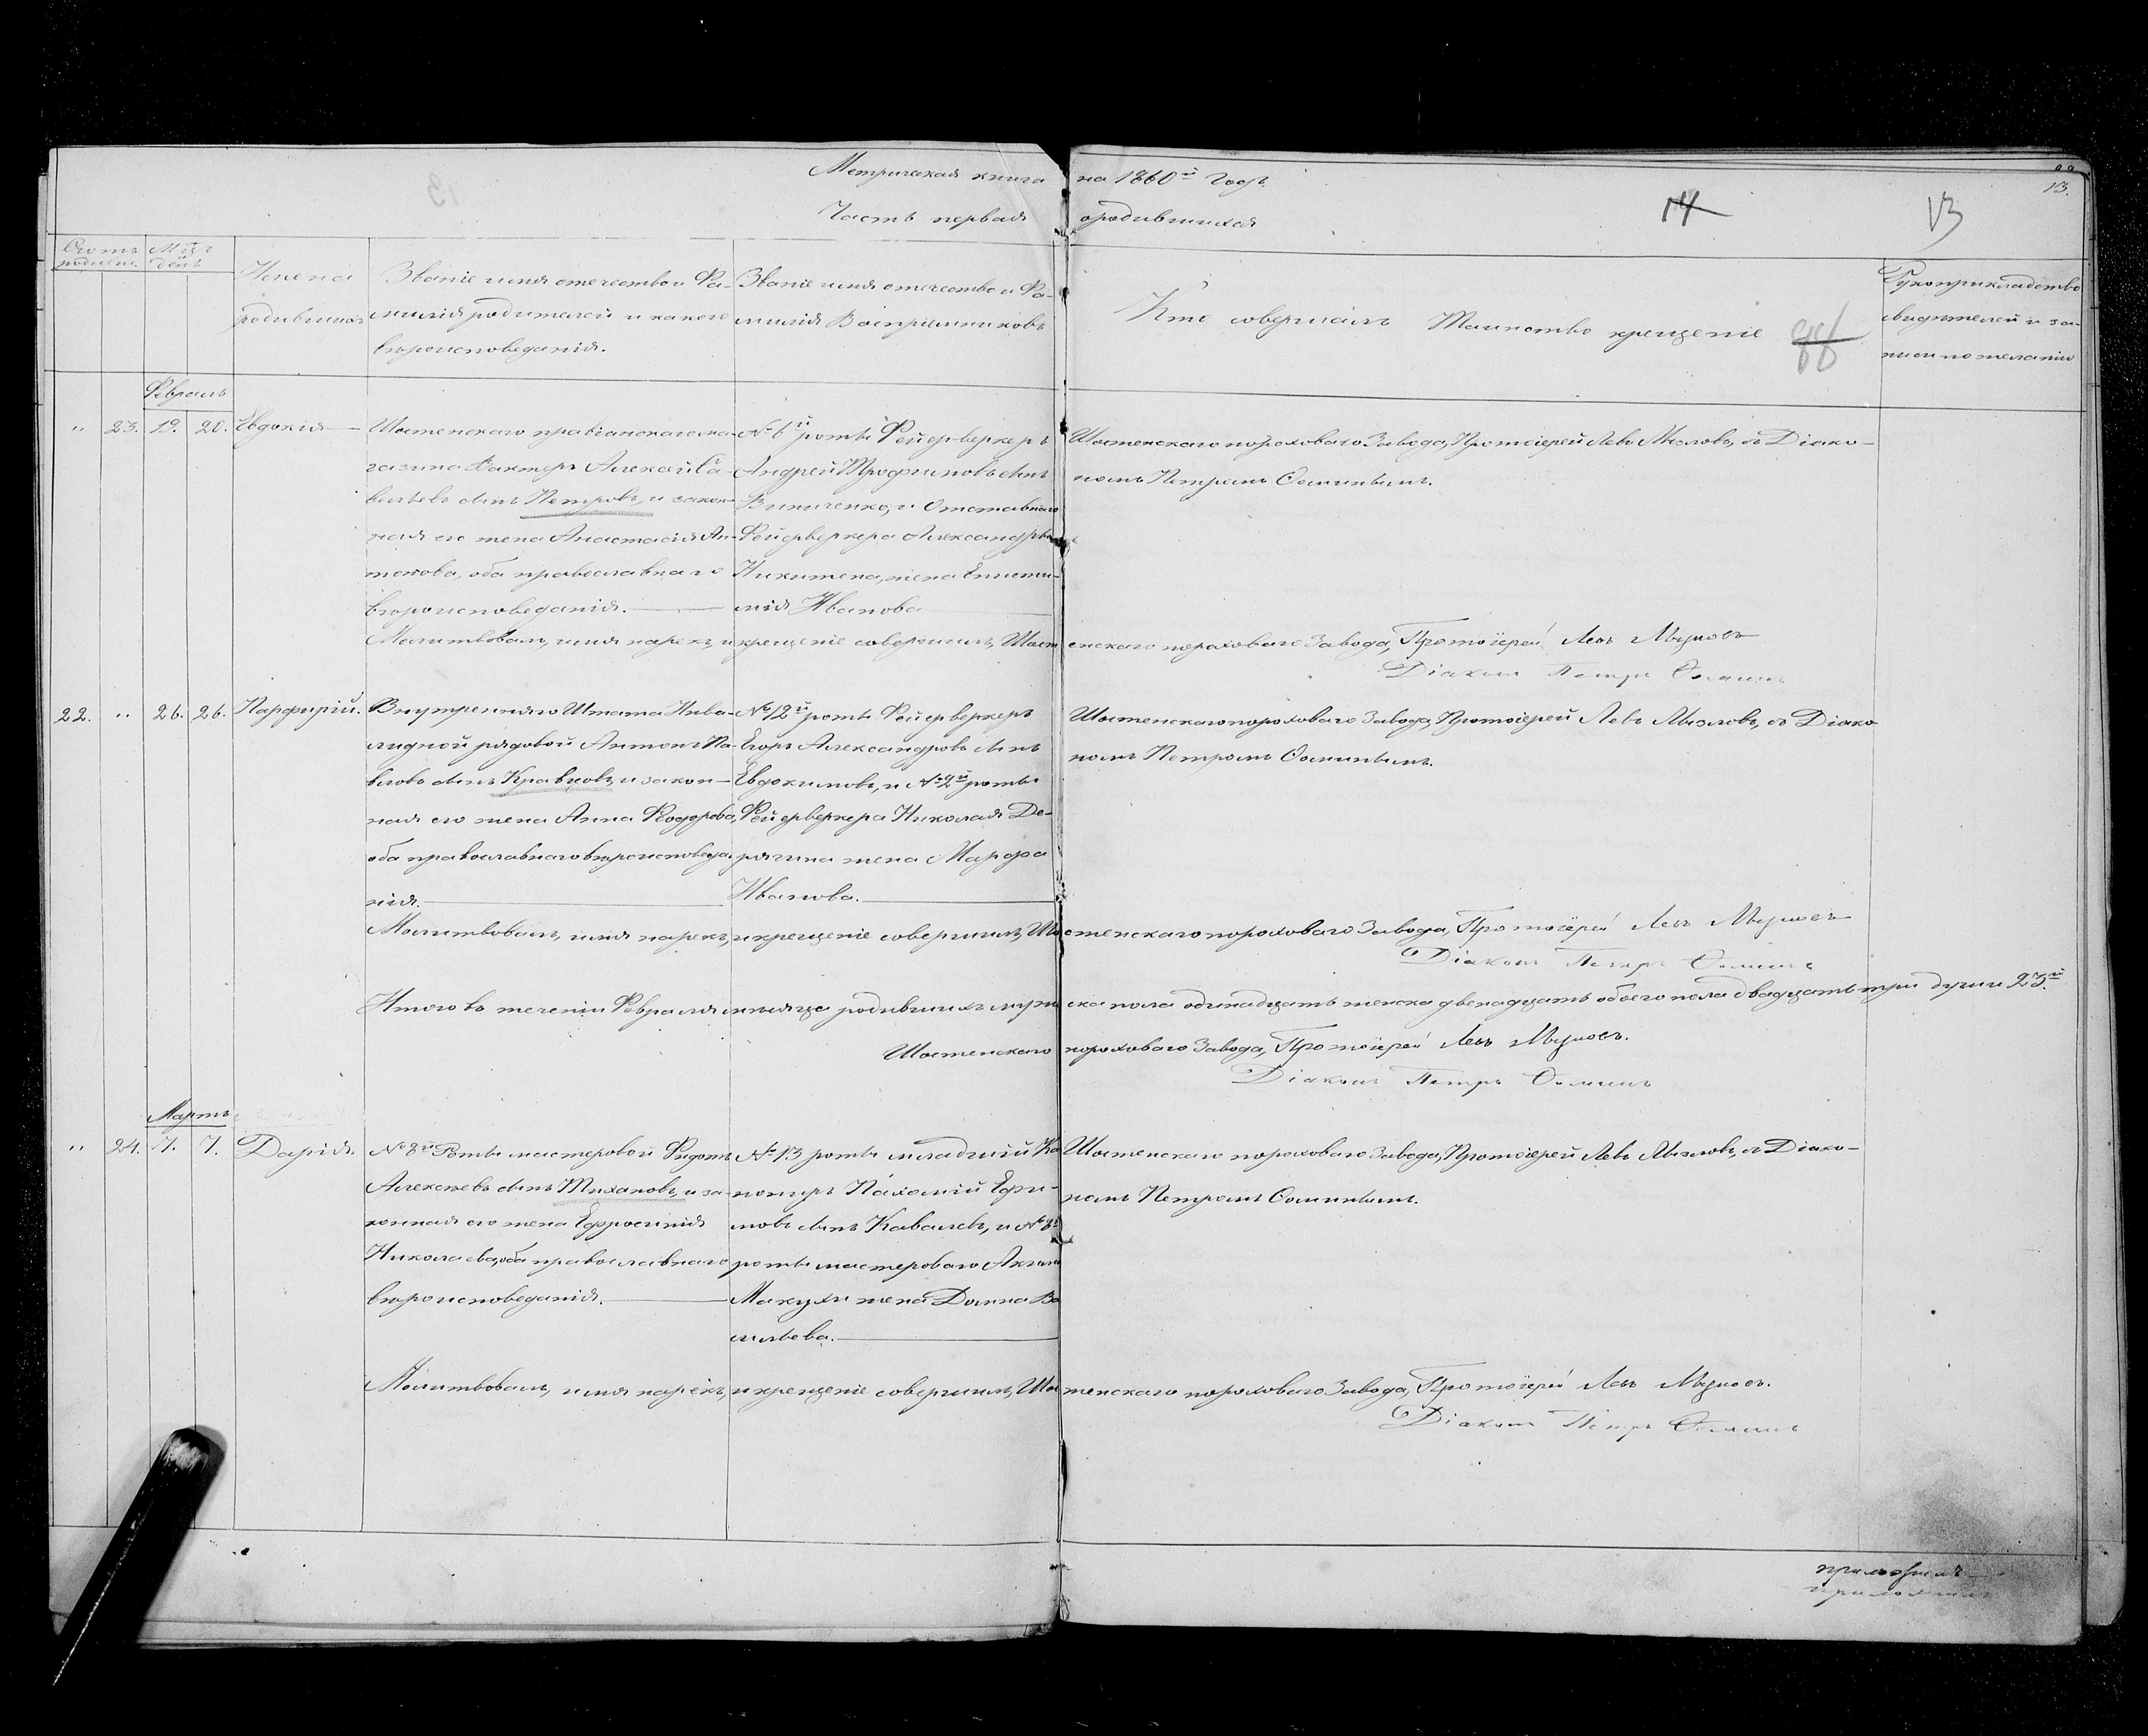 Метрическая книга на 1860й Годъ
13.
14
13
Часть первая о родившихся
Счетъ родивш.
Мѣц. и день
Имена родившихся
Званіе имя отечество и Фа-
милія родителей и какого
вѣроисповеданія.
Званіе имя отечество и Фа-
милія Воспріемниковъ
Кто совершалъ Таинство крещеніе
88
Рукоприкладство
свидѣтелей и за-
писи по желанію
Февраль
" 23. 19. 20. Евдокія
Шостенскаго правіанскаго ма-
газина Вахтеръ Алексей Са-
вельевъ сынъ Петровъ, и закон-
ная его жена Анастасія Ан-
тонова, оба православнаго
вѣроисповеданія.
№ 6й роты Фейерверкеръ
Андрей Трофимовъ сынъ
Виниченко, и Отставнаго
Фейерверкера Александра
Никитена, жена Еписти-
мія Иванова
Шостенскаго пороховаго Завода, Протоіерей Левъ Мызловъ, съ Діако-
номъ Петромъ Ѳоминымъ.
Молитвовалъ, имя нарекъ, и крещеніе совершилъ, Шостенскаго пороховаго Завода, Протоіерей Левъ
Діаконъ Петръ Ѳоминъ
22. " 26. 26. Парфирій.
Внутренняго Штата Инва-
лидной рядовой Антонъ Па-
вловъ сынъ Кравцовъ, и закон-
ная его жена Анна Феодорова,
оба православнаго вѣроисповеда-
нія.
№ 12й роты Фейерверкеръ
Егоръ Александровъ сынъ
Евдокимовъ, и № 2й роты
Фейерверкера Николая Де-
рягина жена Марфа
Иванова.
Шостенскаго пороховаго Завода, Протоіерей Левъ Мызловъ, съ Діако-
номъ Петромъ Ѳоминымъ.
Молитвовалъ, имя нарекъ, и крещеніе совершилъ, Шостенскаго пороховаго Завода, Протоіерей Левъ
Діаконъ Петръ Ѳоминъ
Итого въ теченіи Февраля мѣсяца родившихъ мужеска пола одинадцать женска двенадцать обоего пола двадцать три души 23й
Шостенскаго пороховаго Завода, Протоіерей Левъ
Діаконъ Петръ Ѳоминъ
Мартъ
" 24. 7. 7. Дарія.
№ 8й Роты мастеровой Федотъ
Алексѣевъ сынъ Тихановъ, и за-
конная его жена Ефросинія
Николаева, оба православнаго
вѣроисповеданія.
№ 13 роты младшій Ка-
ноніръ Пахомій Ефи-
мовъ сынъ Кавалевъ, и № 8й
роты мастероваго
Макухи жена Домна Ва-
сильева.
Шостенскаго пороховаго Завода, Протоіерей Левъ Мызловъ, съ Діако-
номъ Петромъ Ѳоминымъ.
Молитвовалъ, имя нарекъ, и крещеніе совершилъ, Шостенскаго пороховаго Завода, Протоіерей Левъ
Діаконъ Петръ Ѳоминъ